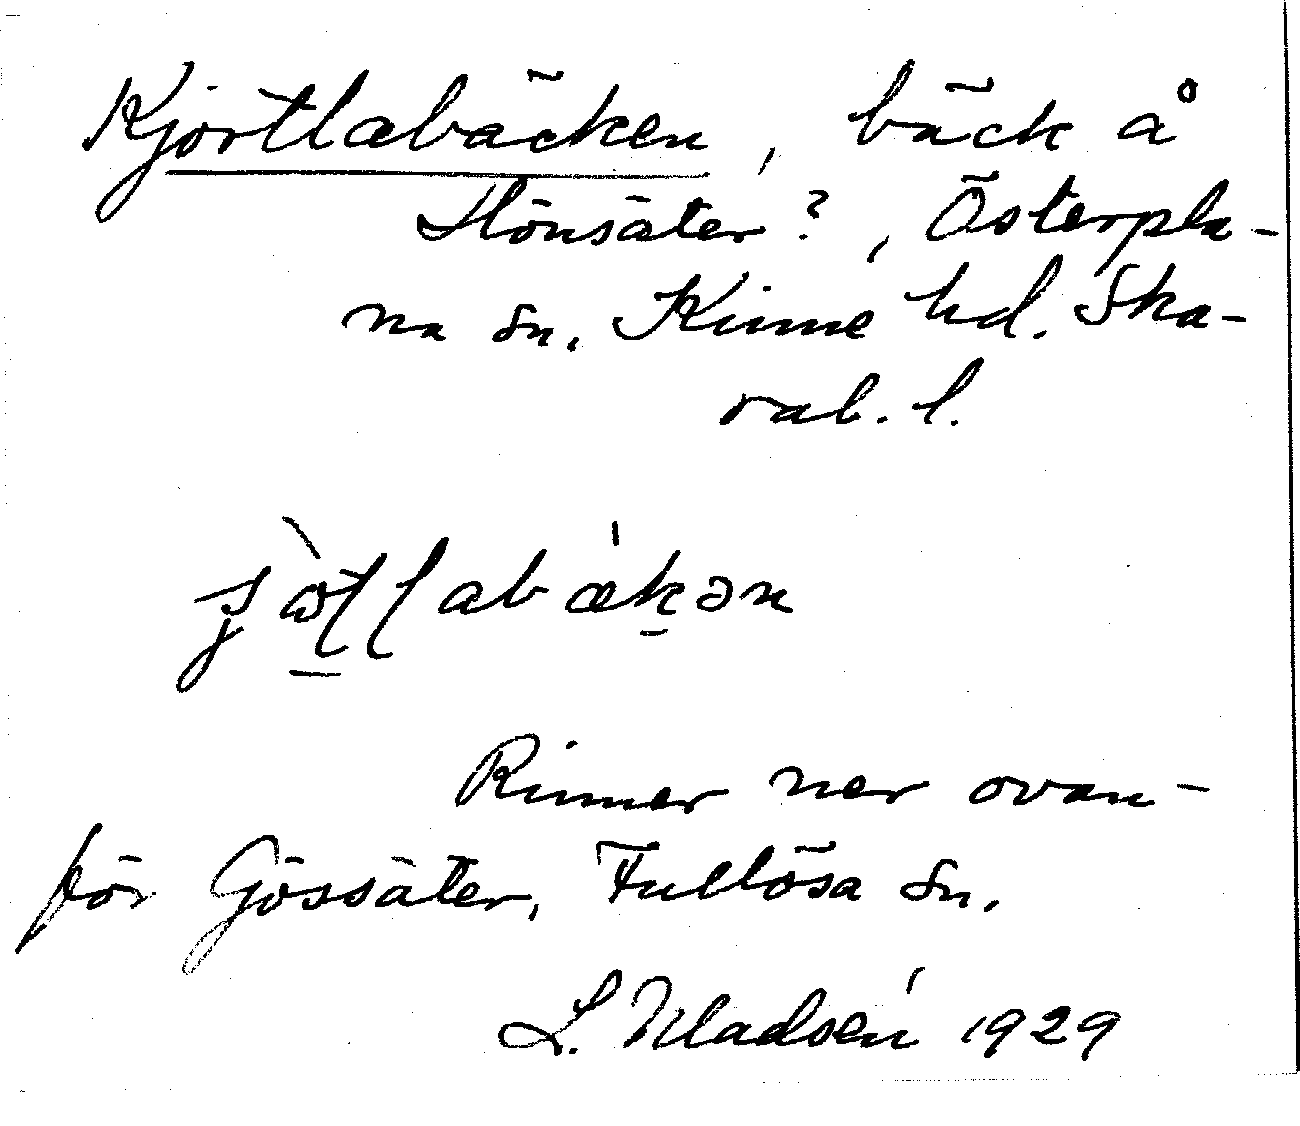 Kjortlabäcken, bäck å
Hönsäter?, Österpla-
na sn. Kinne hd. Ska-
rab. l.
Rinner ner ovan-
för Gössäter, Fullösa sn.
L. Wladsén 1929